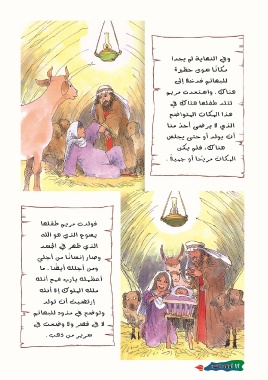 وفي النهاية لم يجدا
مكانًا سوى حظيرة
للبهائم فدخلا إلى
هناك. واستعدت مريم
لتلد طفلها هناك في
هذا المكان المتواضع
الذي لا يرضى أحد منا
أن يولد أو حتى يجلس
هناك، فلم يكن
المكان مريحًا أو جميلاً.
فولدت مريم طفلها
يسوع الذي هو الله
الذي ظهر في الجسد
وصار إنسانًا من أجلي
ومن أجلك أيضًا. ما
أعظمك يارب فمع أنك
ملك الملوك إلا أنك
ارتضيت أن تولد
وتوضع في مذود للبهائم
لا في قصر ولا وضعت في
سرير من ذهب.